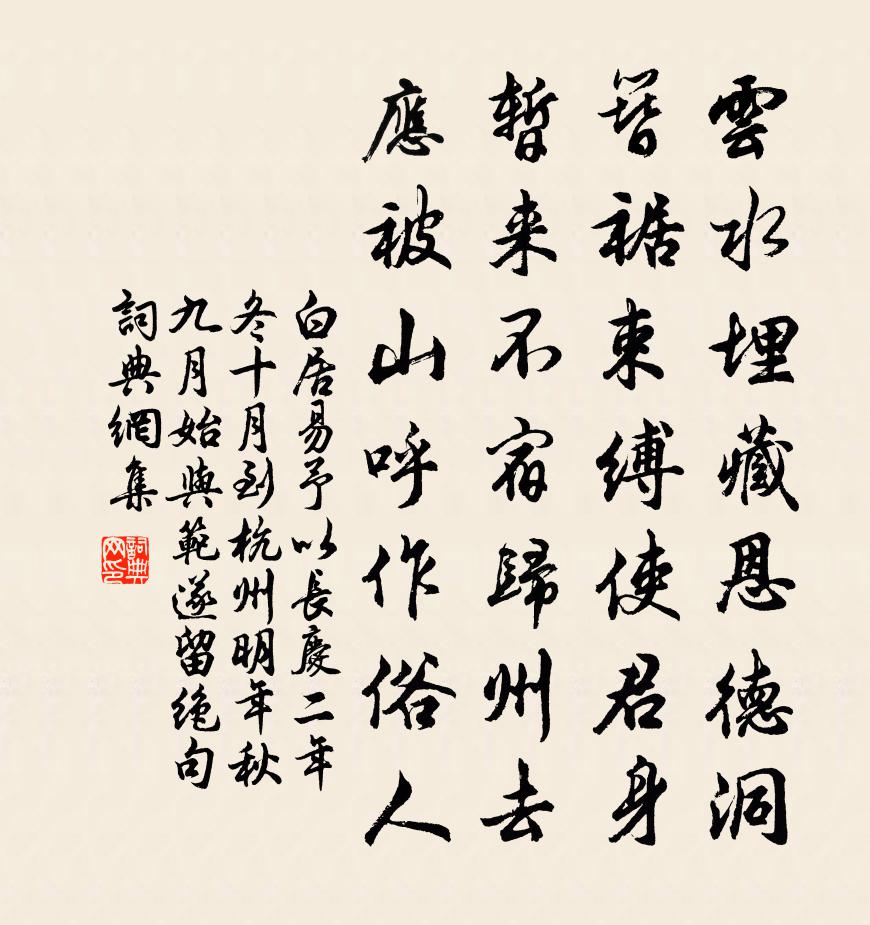 雲水埋藏恩德洞
簪裾束縛使君身
暫来不宿歸州去
應被山呼作俗人
白居易予以長慶二年
冬十月到杭州明年秋
九月始與範遂留絶句
詞典網集
詞典网印